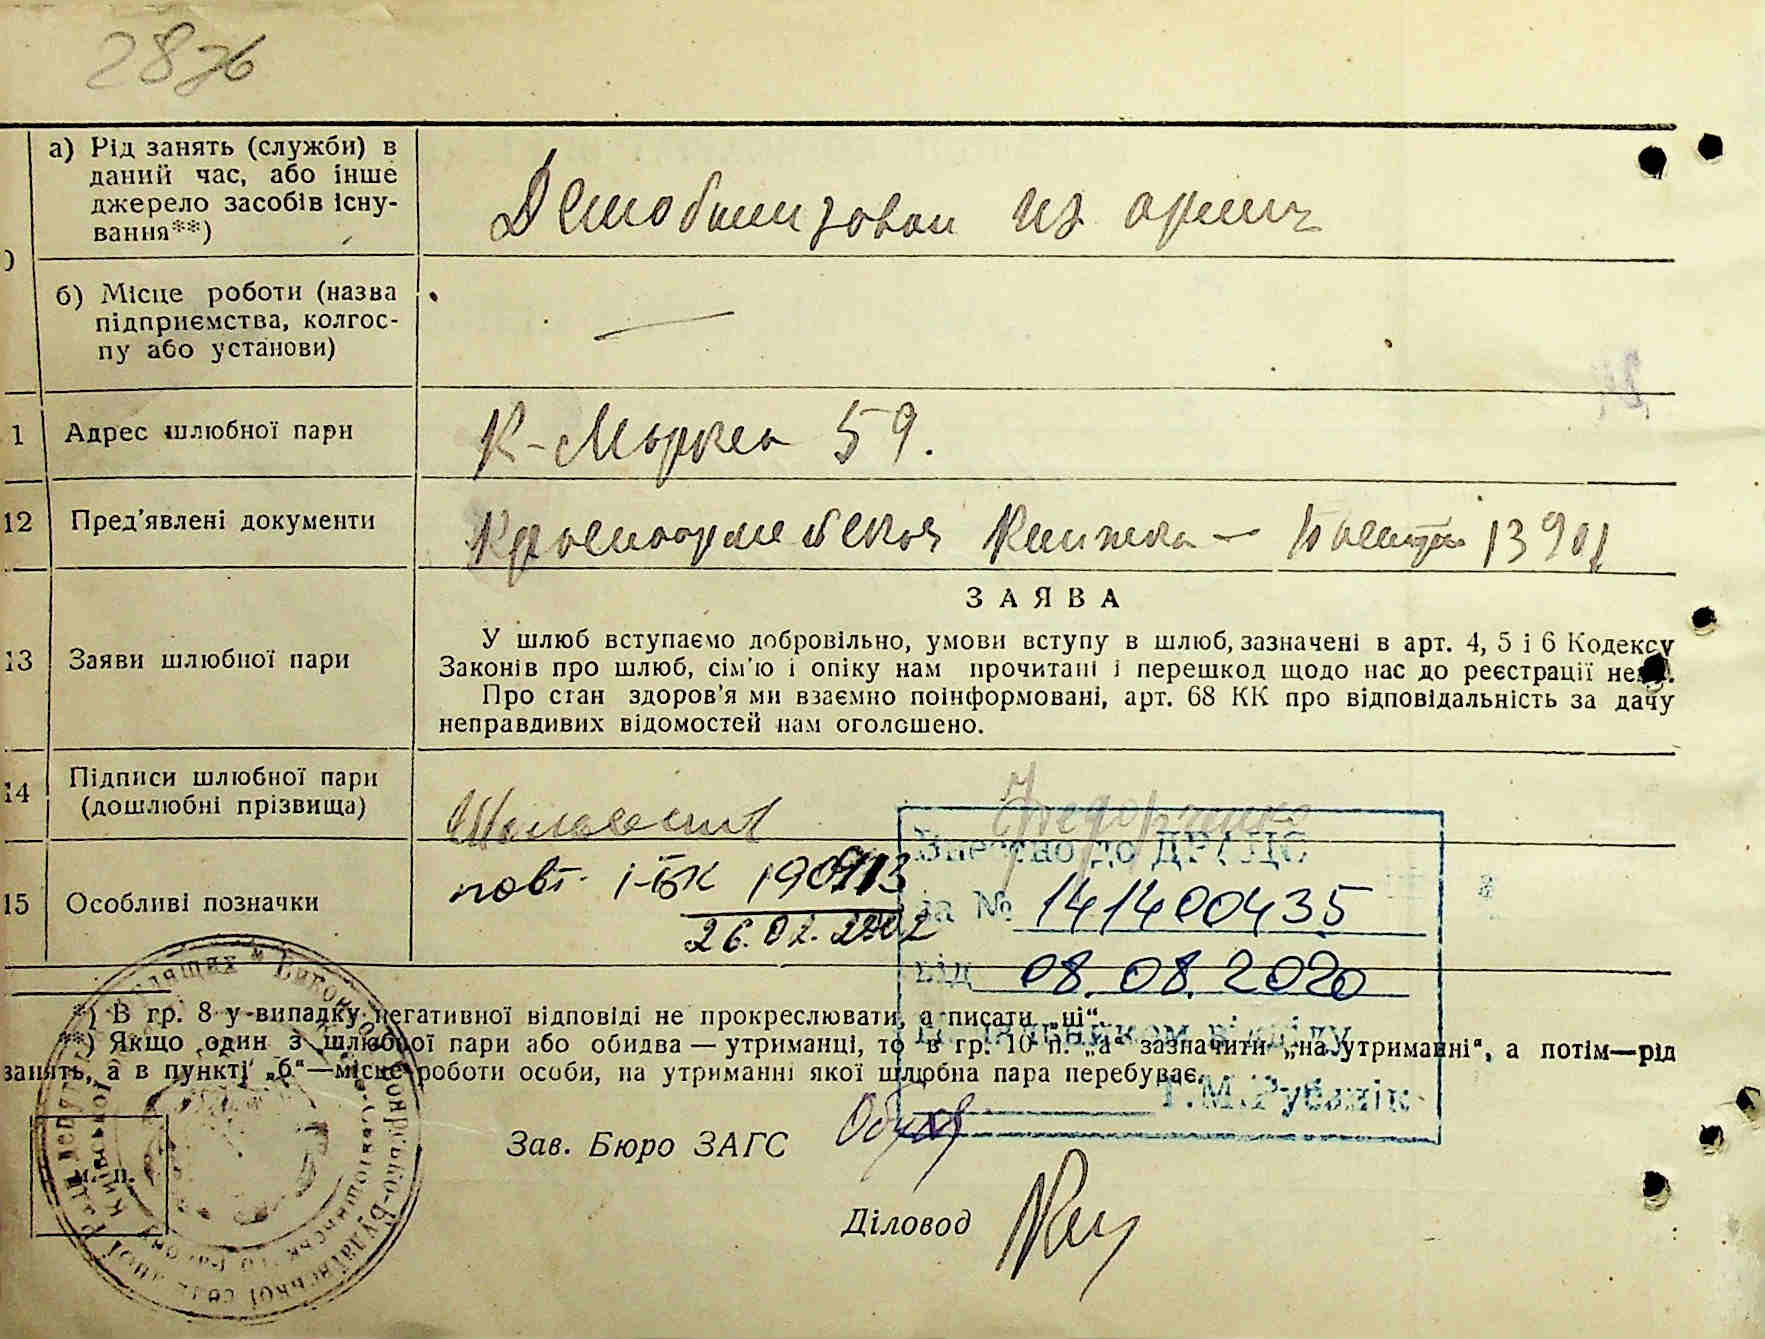 28зб
а) Рід занять (служби) в
даний час, або інше
джерело засобів існу-
вання**)
Демобилизован из армии
б) Місце роботи (назва
підприємства, колгос-
пу або установи)
—
1 Адрес шлюбної пари
К-Маркса 59.
12 Пред'явлені документи
Красноармейская книжка —
13 Заяви шлюбної пари
ЗАЯВА
У шлюб вступаємо добровільно, умови вступу в шлюб, зазначені в арт. 4, 5 і 6 Кодексу
Законів про шлюб, сім'ю і опіку нам прочитані і перешкод щодо нас до реєстрації нема.
Про стан здоров'я ми взаємно поінформовані, арт. 68 КК про відповідальність за дачу
неправдивих відомостей нам оголошено.
14 Підписи шлюбної пари
(дошлюбні прізвища)
Федорченко
15 Особливі позначки
повт. І-БК
26.02.2002
Внесено до ДРАЦС
за № 141400435
від 08.08.2020
Начальником відділу
Г.М.Рубанік
*) В гр. 8 у випадку негативної відповіді не прокреслювати, а писати „ні“.
**) Якщо один з шлюбної пари або обидва — утриманці, то в гр. 10 п. „а“ зазначити „на утриманні“, а потім—рід
занять, а в пункті „б“—місце роботи особи, на утриманні якої шлюбна пара перебуває.
Зав. Бюро ЗАГС
м. п.
Діловод